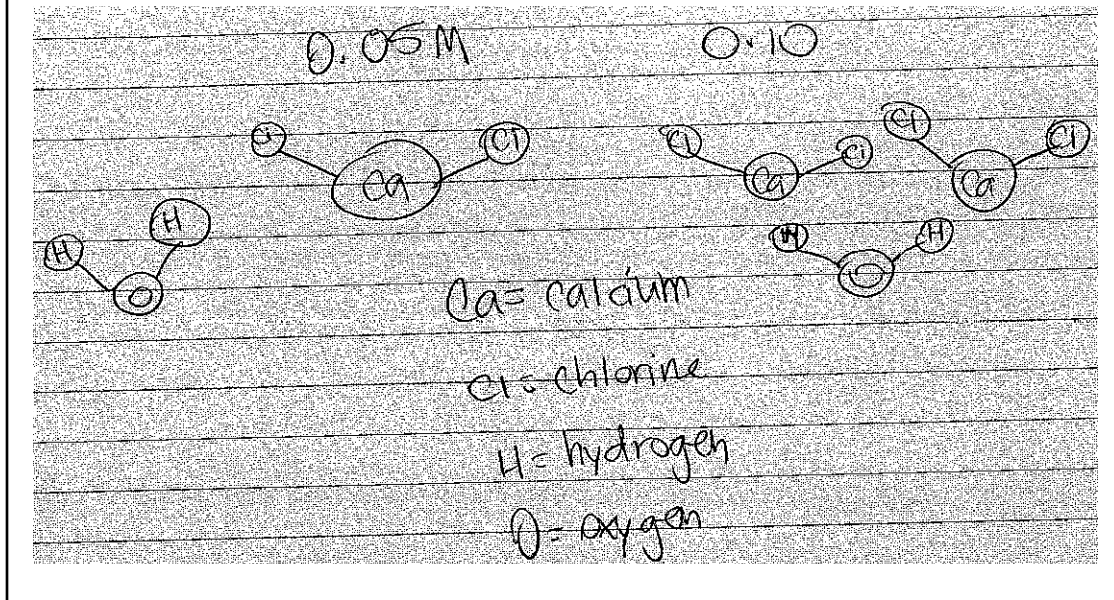 0.05M 0.10
Cl Cl Cl Cl Cl Cl
Ca Ca Ca
H H H H
O O
Ca= calcium
Cl= chlorine
H= hydrogen
O= oxygen